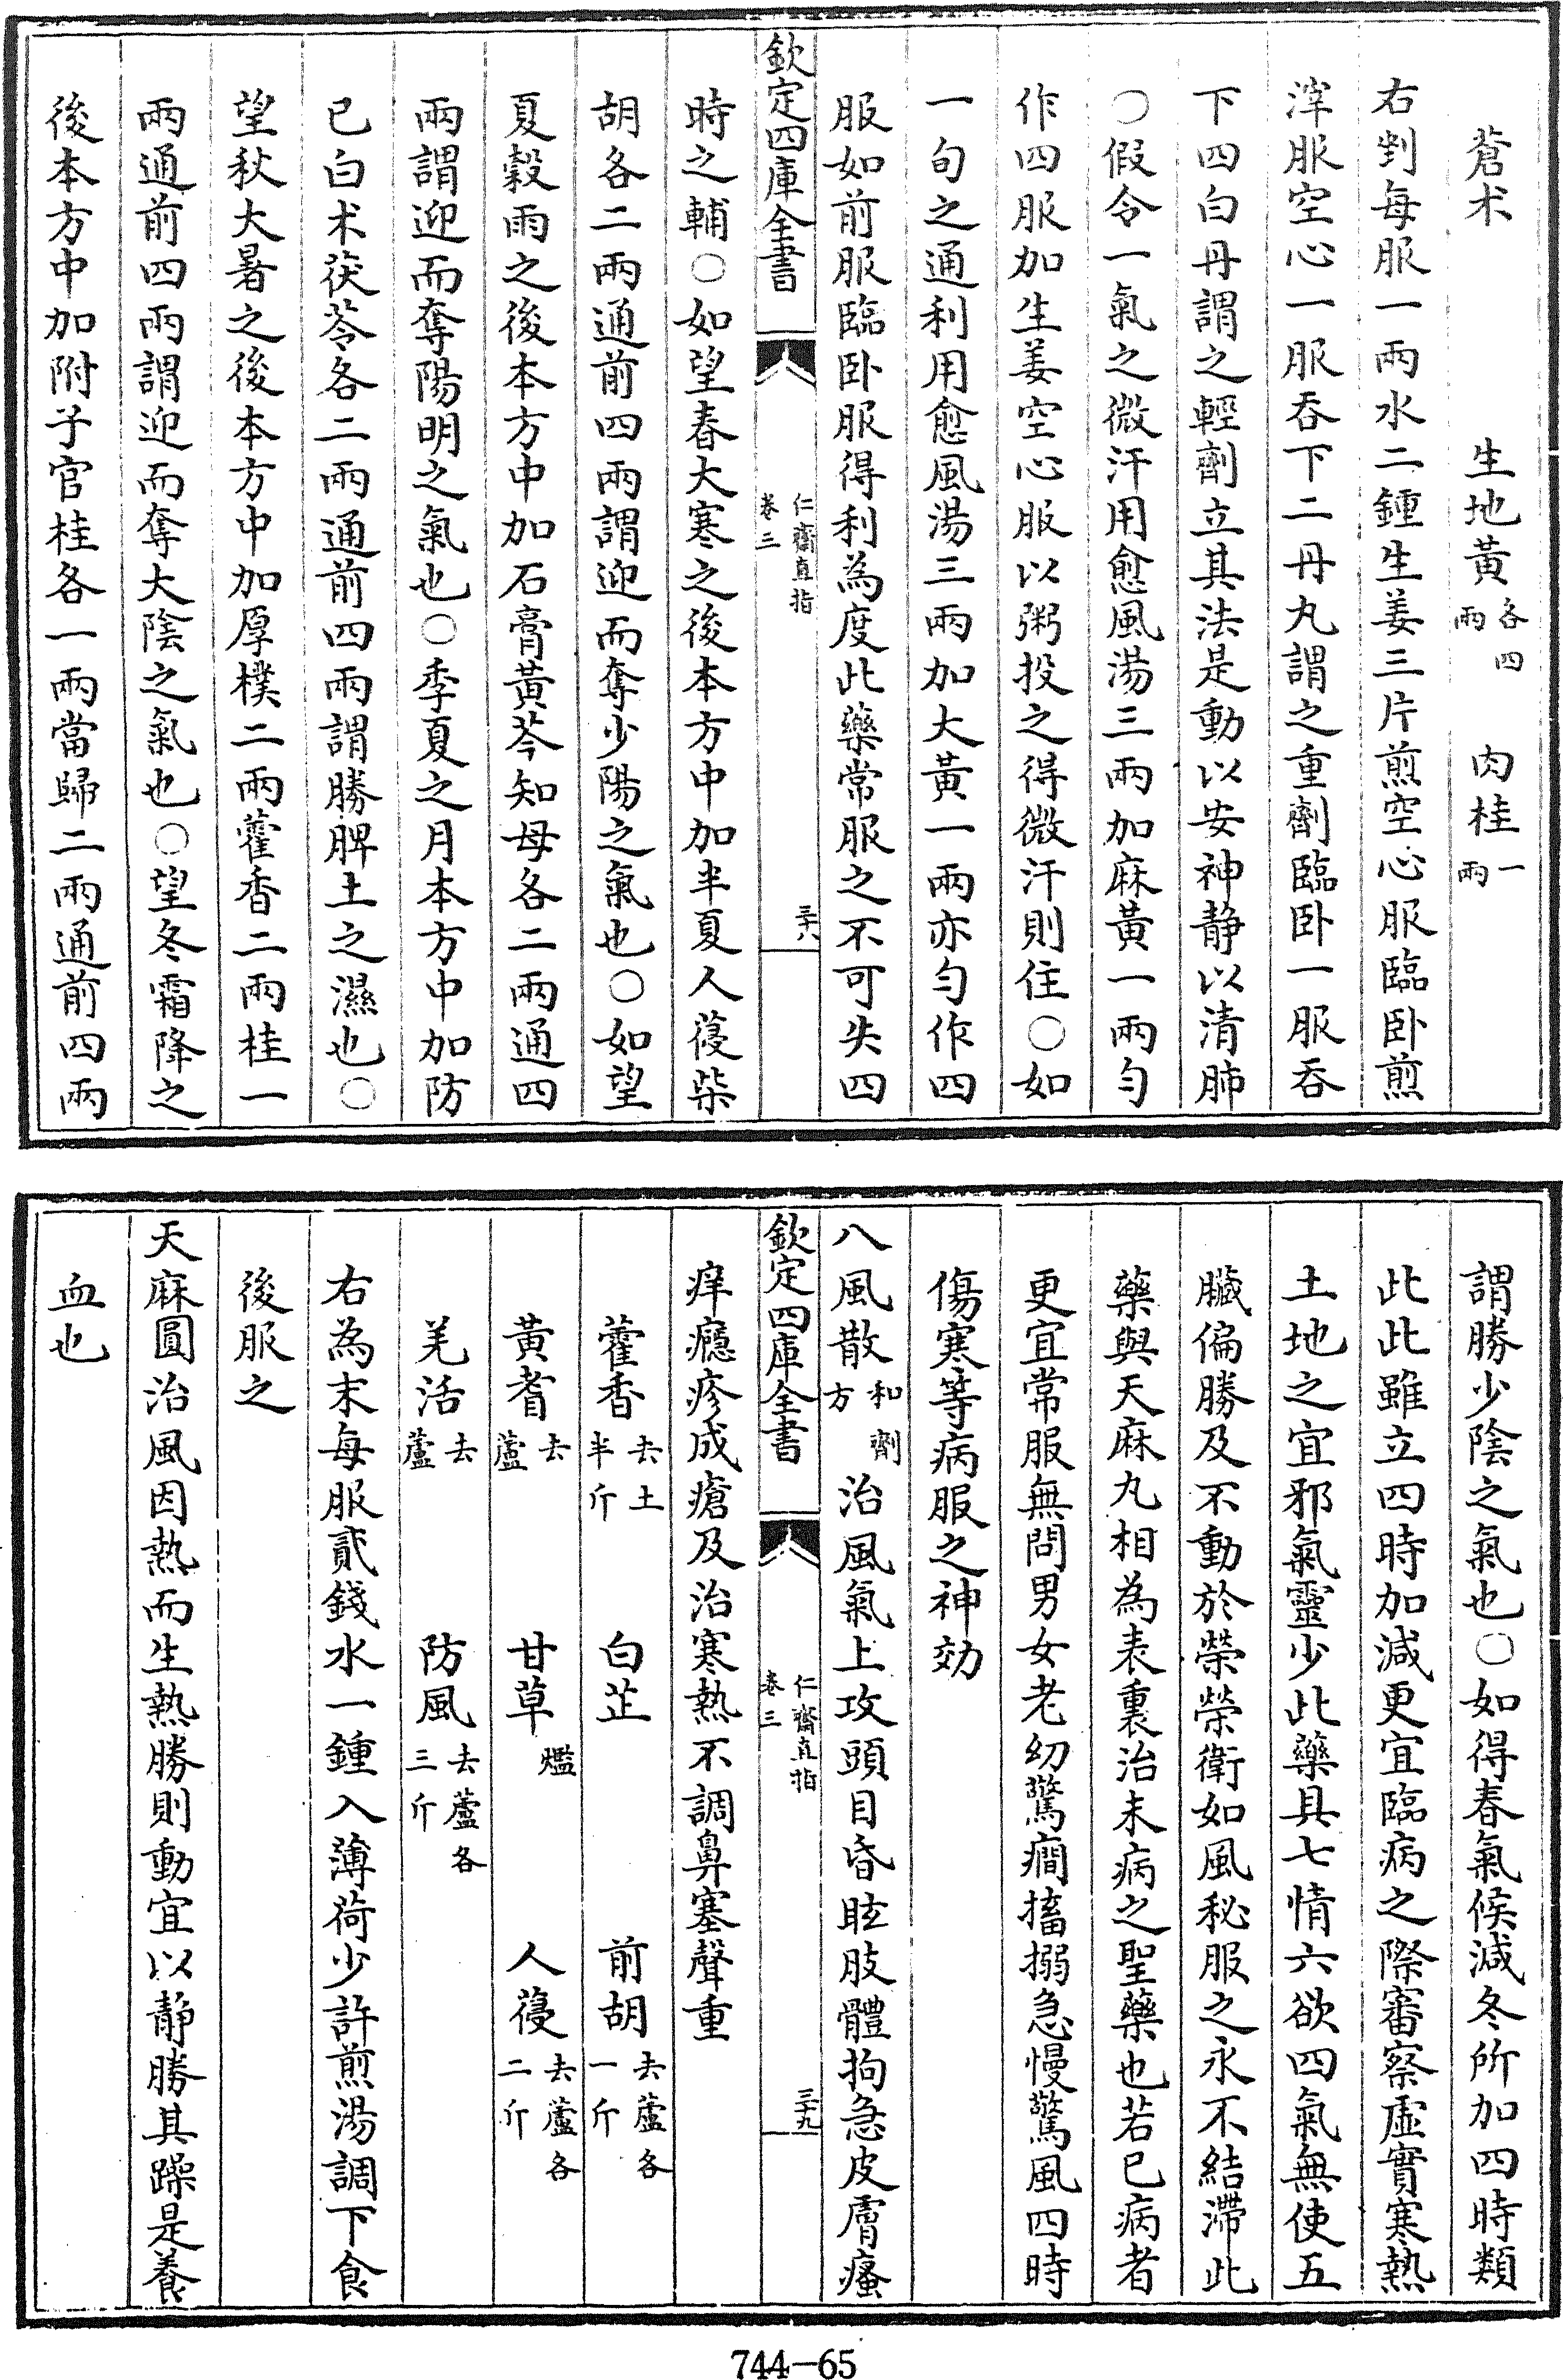 蒼术　生地黃各四兩　肉桂一兩
右剉每服一兩水二鍾生姜三片煎空心服臨卧煎
滓服空心一服吞下二丹丸謂之重劑臨卧一服吞
下四白丹謂之輕劑立其法是動以安神静以清肺
○假令一氣之微汗用愈風湯三兩加麻黃一兩勻
作四服加生姜空心服以粥投之得微汗則住○如
一旬之通利用愈風湯三兩加大黃一兩亦勻作四
服如前服臨卧服得利為度此藥常服之不可失四
欽定四庫全書
仁齋直指
卷三
三十八
時之輔○如望春大寒之後本方中加半夏人葠柴
胡各二兩通前四兩謂迎而奪少陽之氣也○如望
夏穀雨之後本方中加石膏黃芩知母各二兩通四
兩謂迎而奪陽明之氣也○季夏之月本方中加防
已白术茯苓各二兩通前四兩謂勝脾土之濕也○
望秋大暑之後本方中加厚樸二兩藿香二兩桂一
兩通前四兩謂迎而奪大陰之氣也○望冬霜降之
後本方中加附子官桂各一兩當歸二兩通前四兩
謂勝少陰之氣也○如得春氣候減冬所加四時類
此此雖立四時加減更宜臨病之際審察虛實寒熱
土地之宜邪氣靈少此藥具七情六欲四氣無使五
臟偏勝及不動於榮榮衛如風秘服之永不結滯此
藥與天麻丸相為表裏治未病之聖藥也若已病者
更宜常服無問男女老幼驚癇搐搦急慢驚風四時
傷寒等病服之神効
八風散和劑方　治風氣上攻頭目昏眩肢體拘急皮膚瘙
欽定四庫全書
仁齋直指
卷三
三十九
痒癮疹成瘡及治寒熱不調鼻塞聲重
藿香去土半斤　白芷　前胡去蘆各一斤
黃耆去蘆　甘草爁　人葠去蘆各二斤
羌活去蘆　防風去蘆各三斤
右為末每服貳錢水一鍾入薄荷少許煎湯調下食
後服之
天麻圓治風因熱而生熱勝則動宜以静勝其躁是養
血也
744-65